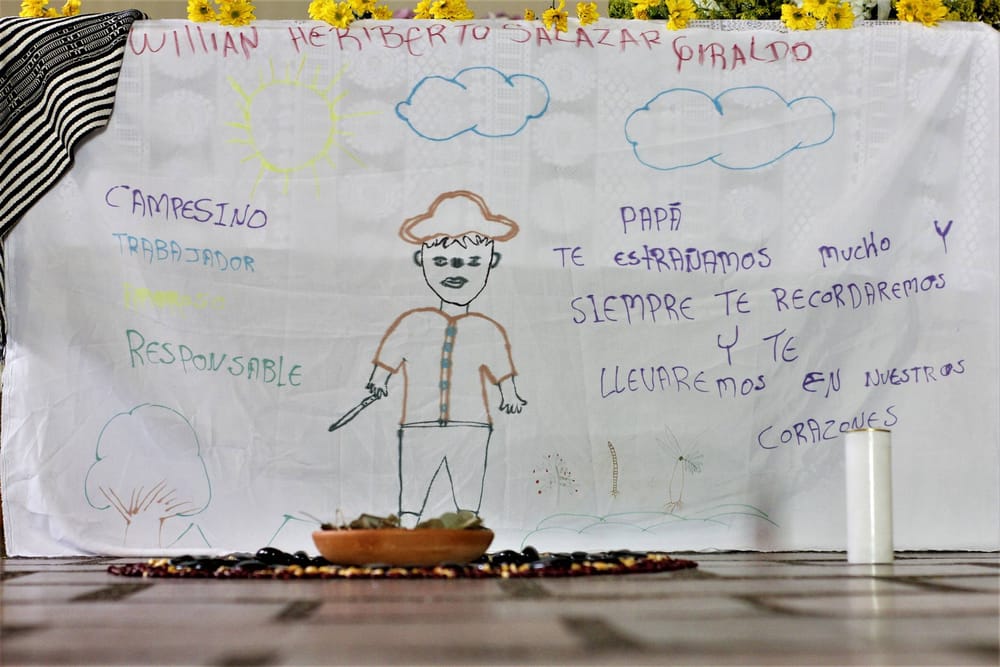 WILLIAN HERIBERTO SALAZAR GIRALDO
CAMPESINO
TRABAJADOR
RESPONSABLE
PAPÁ
TE ESTRAÑAMOS mucho Y
SIEMPRE TE RECORDAREMOS
Y TE
LLEVAREMOS EN NUESTROS
CORAZONES